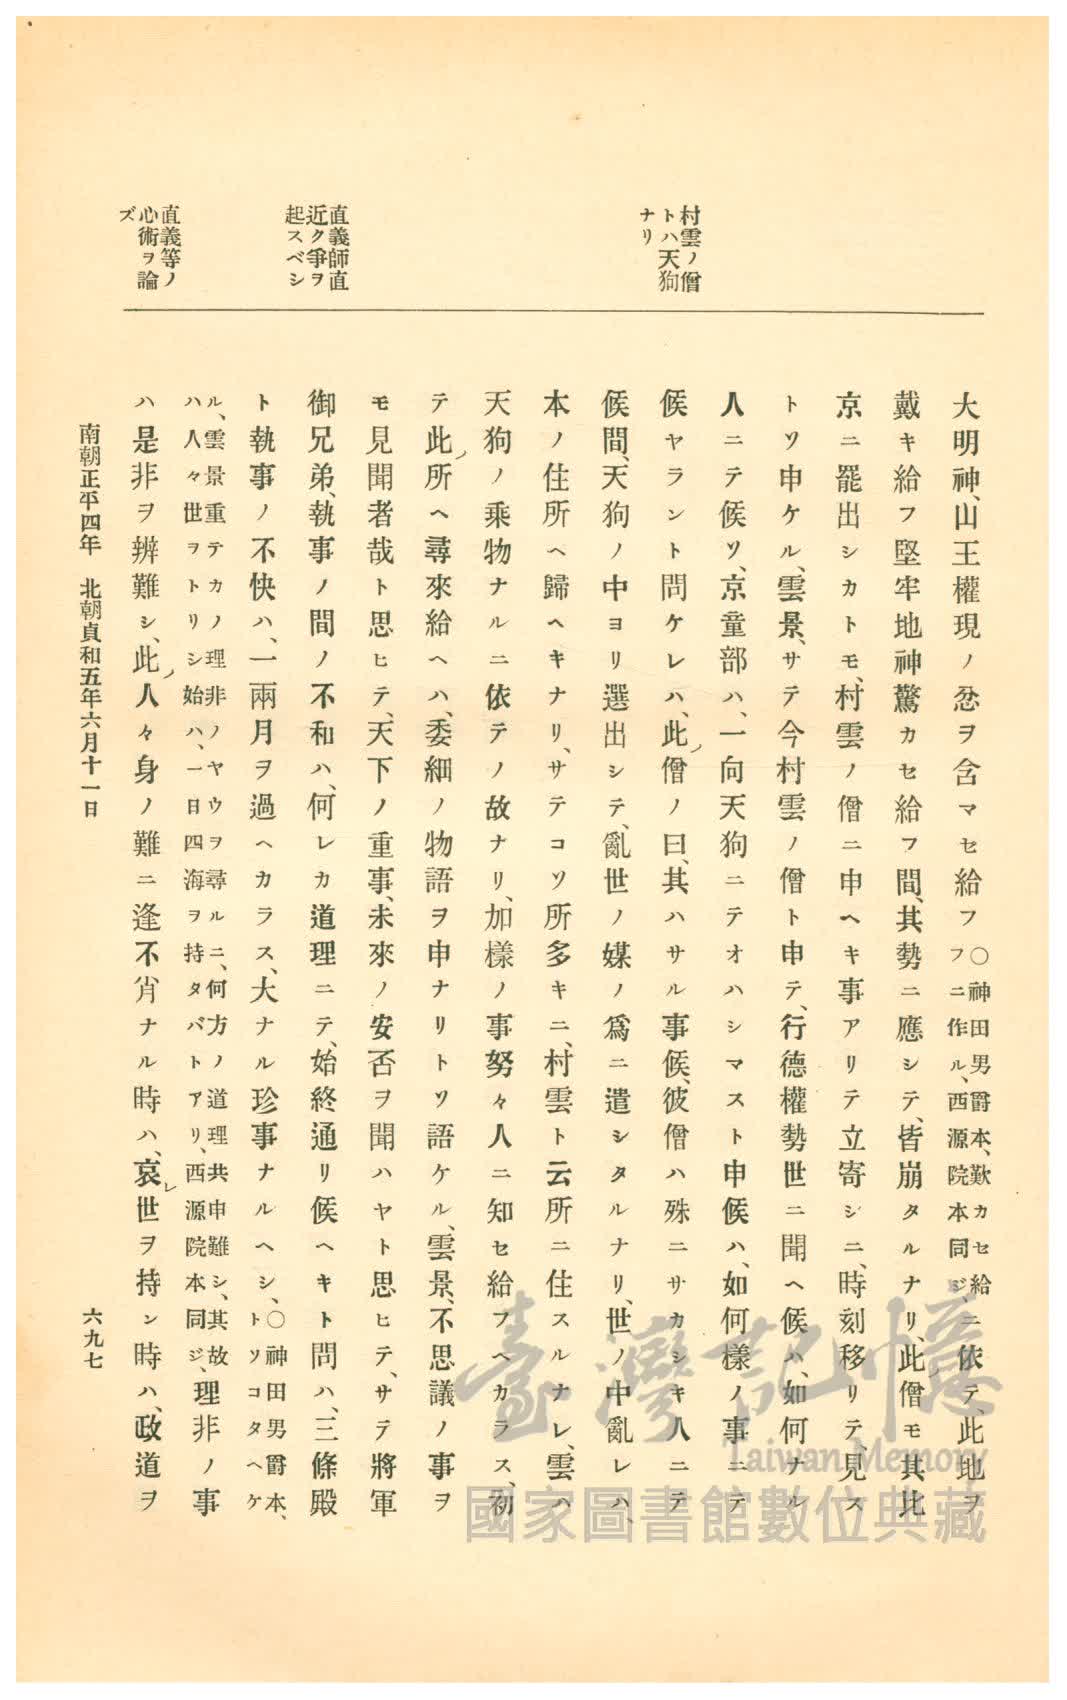 村雲ノ僧
トハ天狗
ナリ
直義師直
近ク爭ヲ
起スベシ
直義等ノ
心術ヲ論
ズ
大明神、山王權現ノ忿ヲ含マセ給フ〇神田男爵本、歎カセ給フニ作ル、西源院本同ジ、ニ依テ、此地ヲ
戴キ給フ堅牢地神驚カセ給フ間、其勢ニ應シテ、皆崩タルナリ、此僧モ其比
京ニ罷出シカトモ、村雲ノ僧ニ申ヘキ事アリテ立寄シニ、時刻移リテ、見ス
トソ申ケル、雲景、サテ今村雲ノ僧ト申テ、行德權勢世ニ聞ヘ候ハ、如何ナル
人ニテ候ソ、京童部ハ、一向天狗ニテオハシマスト申候ハ、如何樣ノ事ニテ
候ヤラント問ケレハ、此僧ノ曰、其ハサル事候、彼僧ハ殊ニサカシキ人ニテ
候間、天狗ノ中ヨリ選出シテ、亂世ノ媒ノ爲ニ遣シタルナリ、世ノ中亂レハ、
本ノ住所ヘ歸ヘキナリ、サテコソ所多キニ、村雲ト云所ニ住スルナレ、雲ハ
天狗ノ乘物ナルニ依テノ故ナリ、加樣ノ事努々人ニ知セ給フヘカラス、初
テ此所ヘ尋來給ヘハ、委細ノ物語ヲ申ナリトソ語ケル、雲景、不思議ノ事ヲ
モ見聞者哉ト思ヒテ、天下ノ重事、未來ノ安否ヲ聞ハヤト思ヒテ、サテ將軍
御兄弟、執事ノ間ノ不和ハ、何レカ道理ニテ、始終通リ候ヘキト問ハ、三條殿
ト執事ノ不快ハ、一兩月ヲ過ヘカラス、大ナル珍事ナルヘシ、〇神田男爵本、トソコタヘケ
ル、雲景重テカノ理非ノヤウヲ尋ルニ、何方ノ道理共申難シ、其故ハ人々世ヲトリシ始ハ、一日四海ヲ持タバトアリ、西源院本同ジ、理非ノ事
ハ是非ヲ辨難シ、此人々身ノ難ニ逢不肖ナル時ハ、哀世ヲ持ン時ハ、政道ヲ
南朝正平四年 北朝貞和五年六月十一日
六九七
臺灣記憶
Taiwan Memory
國家圖書館數位典藏